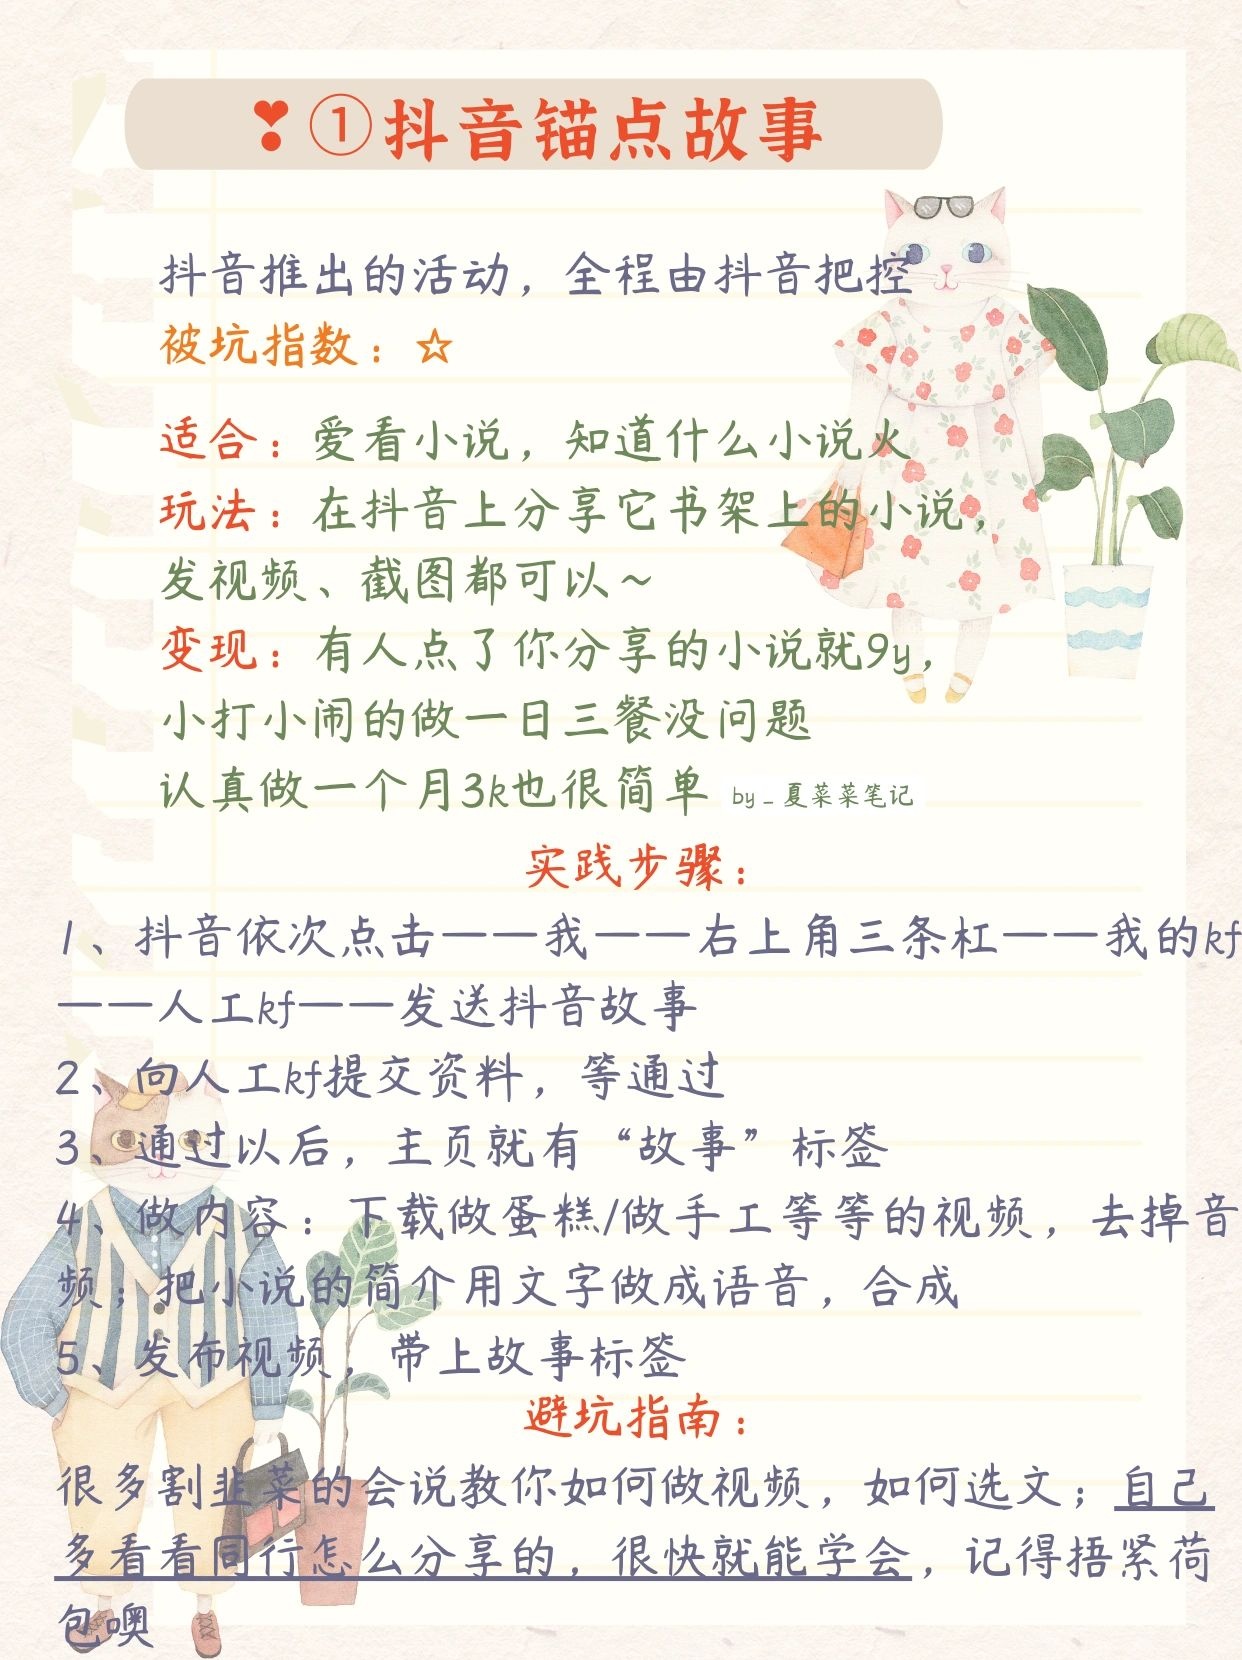 ❣①抖音锚点故事
抖音推出的活动，全程由抖音把控
被坑指数：☆
适合：爱看小说，知道什么小说火
玩法：在抖音上分享它书架上的小说，
发视频、截图都可以~
变现：有人点了你分享的小说就9y，
小打小闹的做一日三餐没问题
认真做一个月3k也很简单 by_夏菜菜笔记
实践步骤：
1、抖音依次点击——我——右上角三条杠——我的kf
——人工kf——发送抖音故事
2、向人工kf提交资料，等通过
3、通过以后，主页就有“故事”标签
4、做内容：下载做蛋糕/做手工等等的视频，去掉音
频；把小说的简介用文字做成语音，合成
5、发布视频，带上故事标签
避坑指南：
很多割韭菜的会说教你如何做视频，如何选文；自己
多看看同行怎么分享的，很快就能学会，记得捂紧荷
包噢